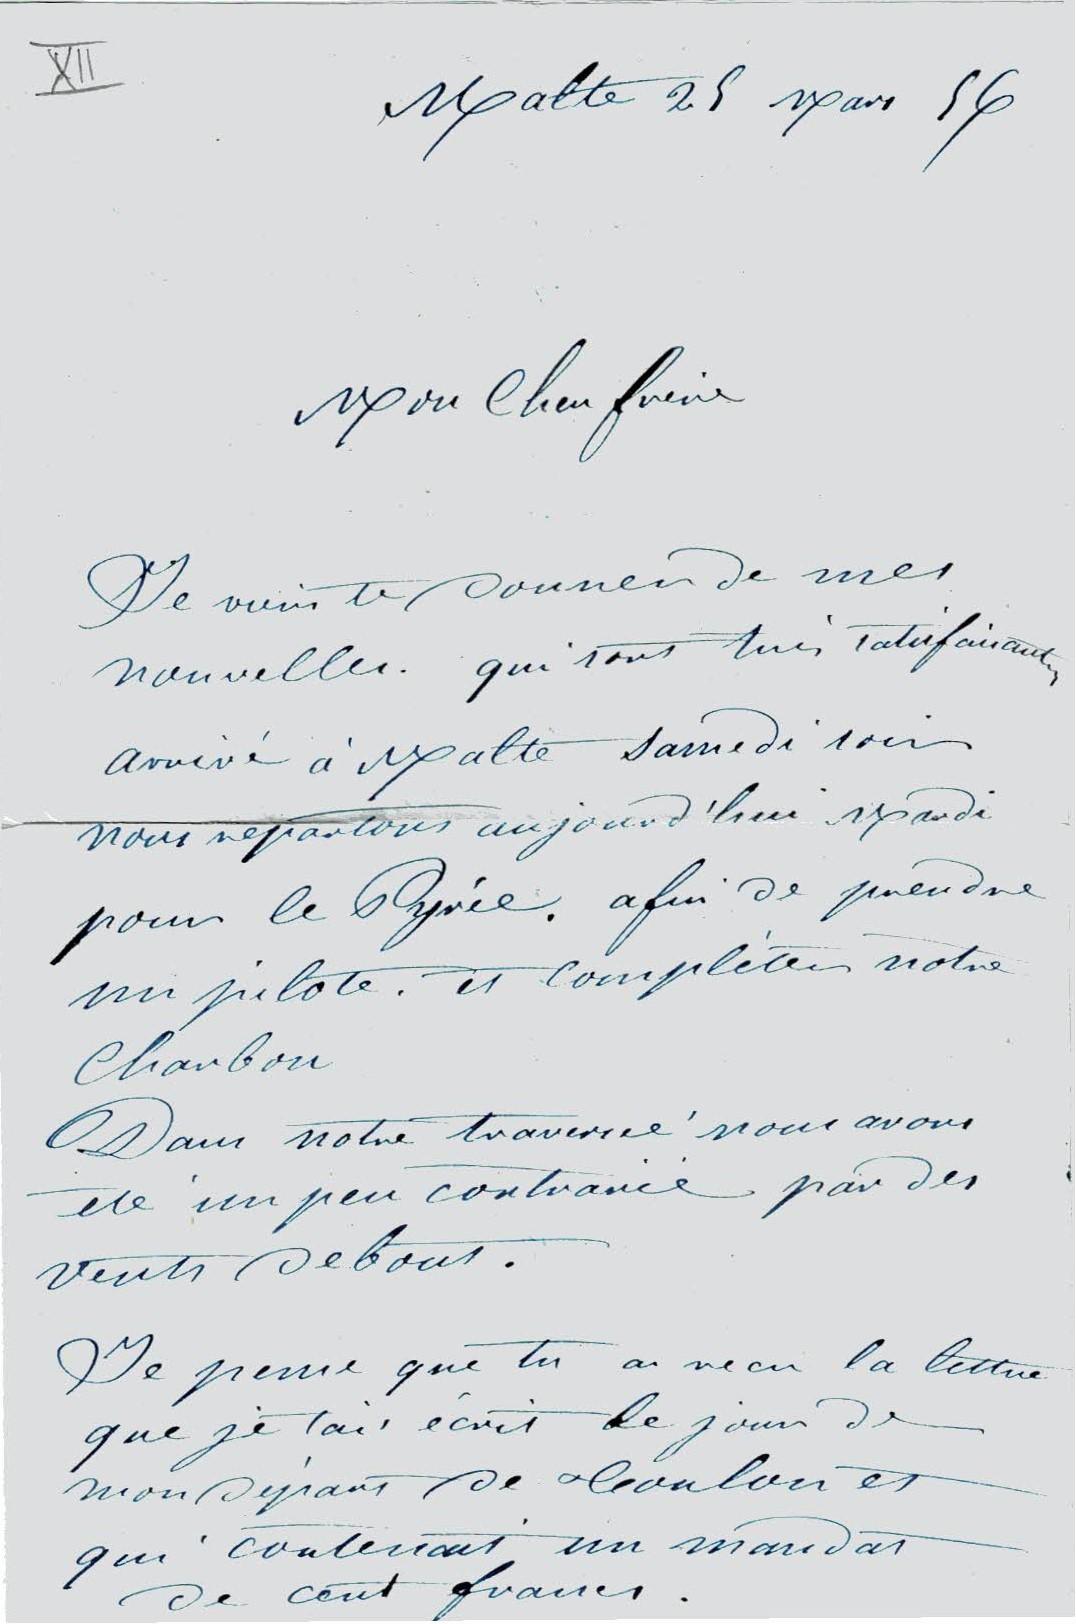 XII
Malte 25 Mars 56
Mon Cher frère
Je viens te donner de mes
nouvelles. qui sont très satisfaisantes
arrivé à Malte samedi soir
nous repartons aujourd'hui Mardi
pour le Pyrée. afin de prendre
un pilote. et complèter notre
Charbon
Dans notre traversée nous avons
été un peu contrarié par des
vents debout.
Je pense que tu as recu la lettre
que je t'ais écrit le jour de
mon départ de Toulon et
qui contenait un mandat
de cent francs.